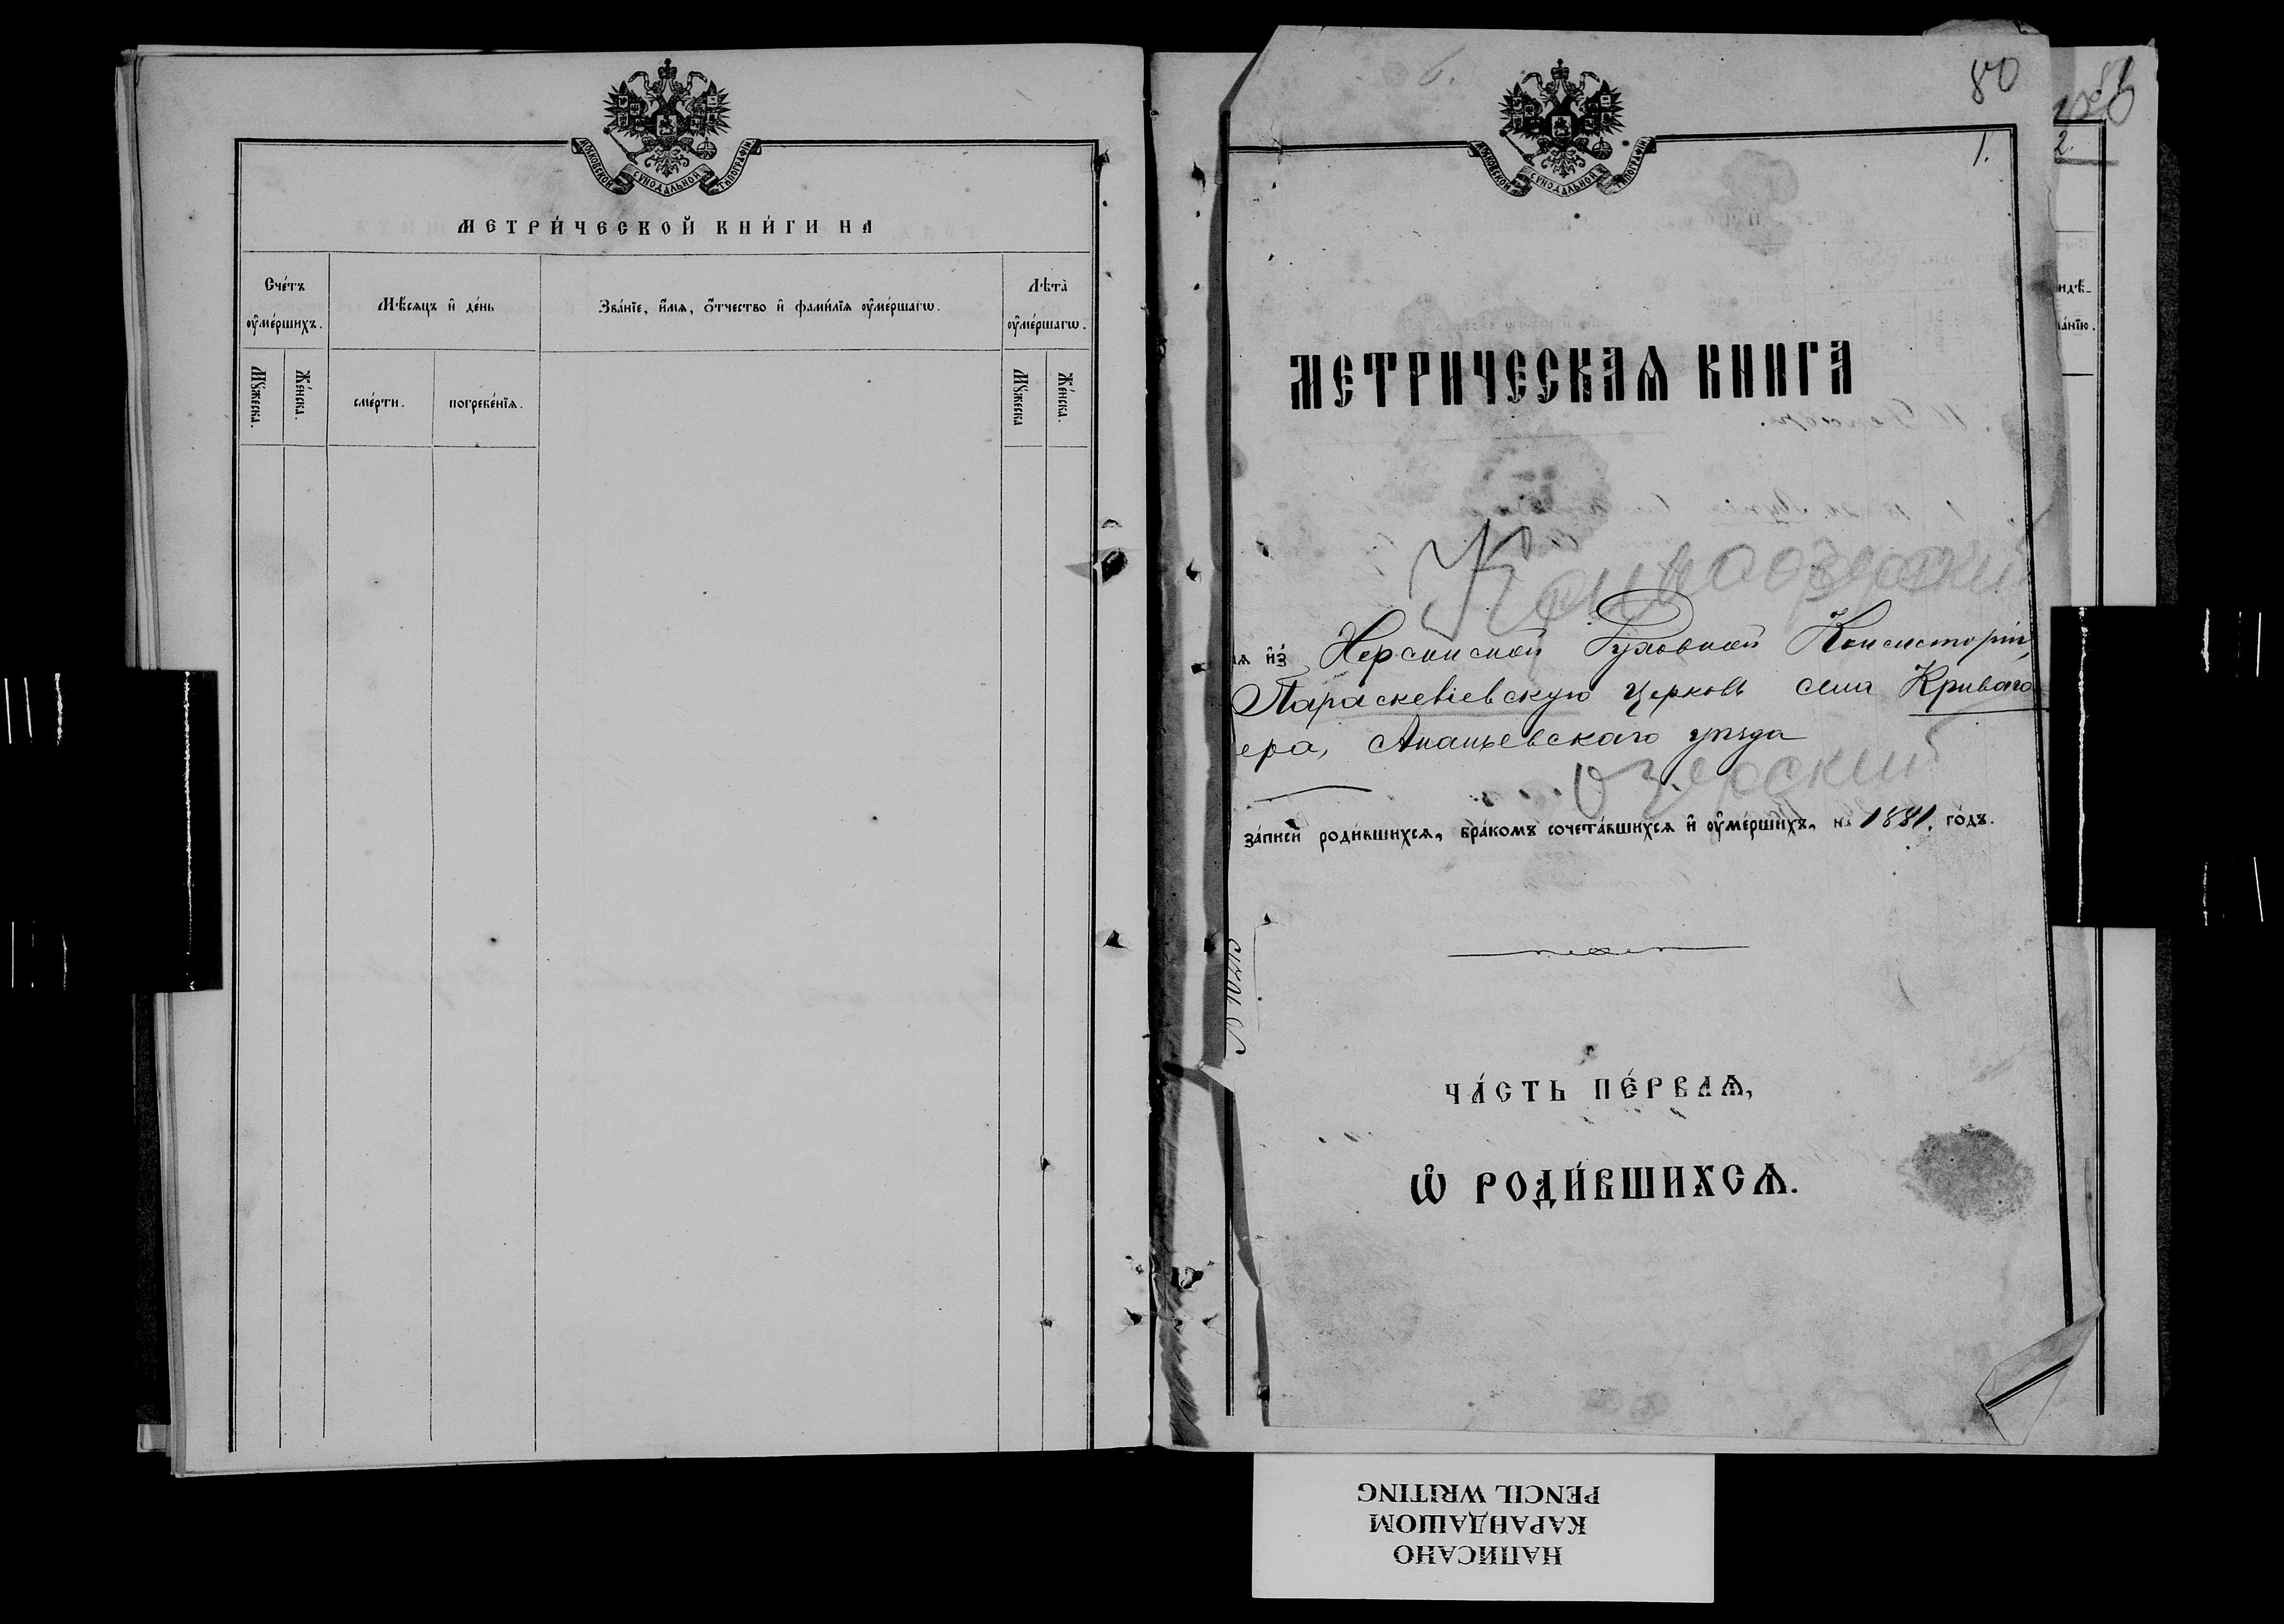 МОСКОВСКОЙ СѴНОДАЛЬНОЙ ТИПОГРАФІИ
МЕТРИ́ЧЕСКОЙ КНИ́ГИ НА
Сче́тъ ᲂу҆ме́ршихъ.
Мѣ́сяцъ и҆ де́нь
Зва́нїе, и҆́мѧ, ѻ҆́тчество и҆ фами́лїѧ ᲂу҆ме́ршагѡ.
Лѣта̀ ᲂу҆ме́ршагѡ.
Мꙋ́жеска.
Же́нска.
сме́рти.
погребе́нїѧ.
Мꙋ́жеска
Же́нска.
80
МОСКОВСКОЙ СѴНОДАЛЬНОЙ ТИПОГРАФІИ
1.
2.
МЕТРИЧЕСКАѦ КНИГА
ѧ и҆з̾ Херсонской Духовной Консисторіи,
Параскевіевскую церковь села Криваго
ера, Ананьевскаго уѣзда
озерский
за́писи роди́вшихсѧ, бра́комъ сочета́вшихсѧ и҆ ᲂу҆ме́ршихъ, на 1881. го́дъ.
ЧА́СТЬ ПЕ́РВАѦ,
Ѡ҆ РОДИ́ВШИХСѦ.
НАПИСАНО
КАРАНДАШОМ
PENCIL WRITING